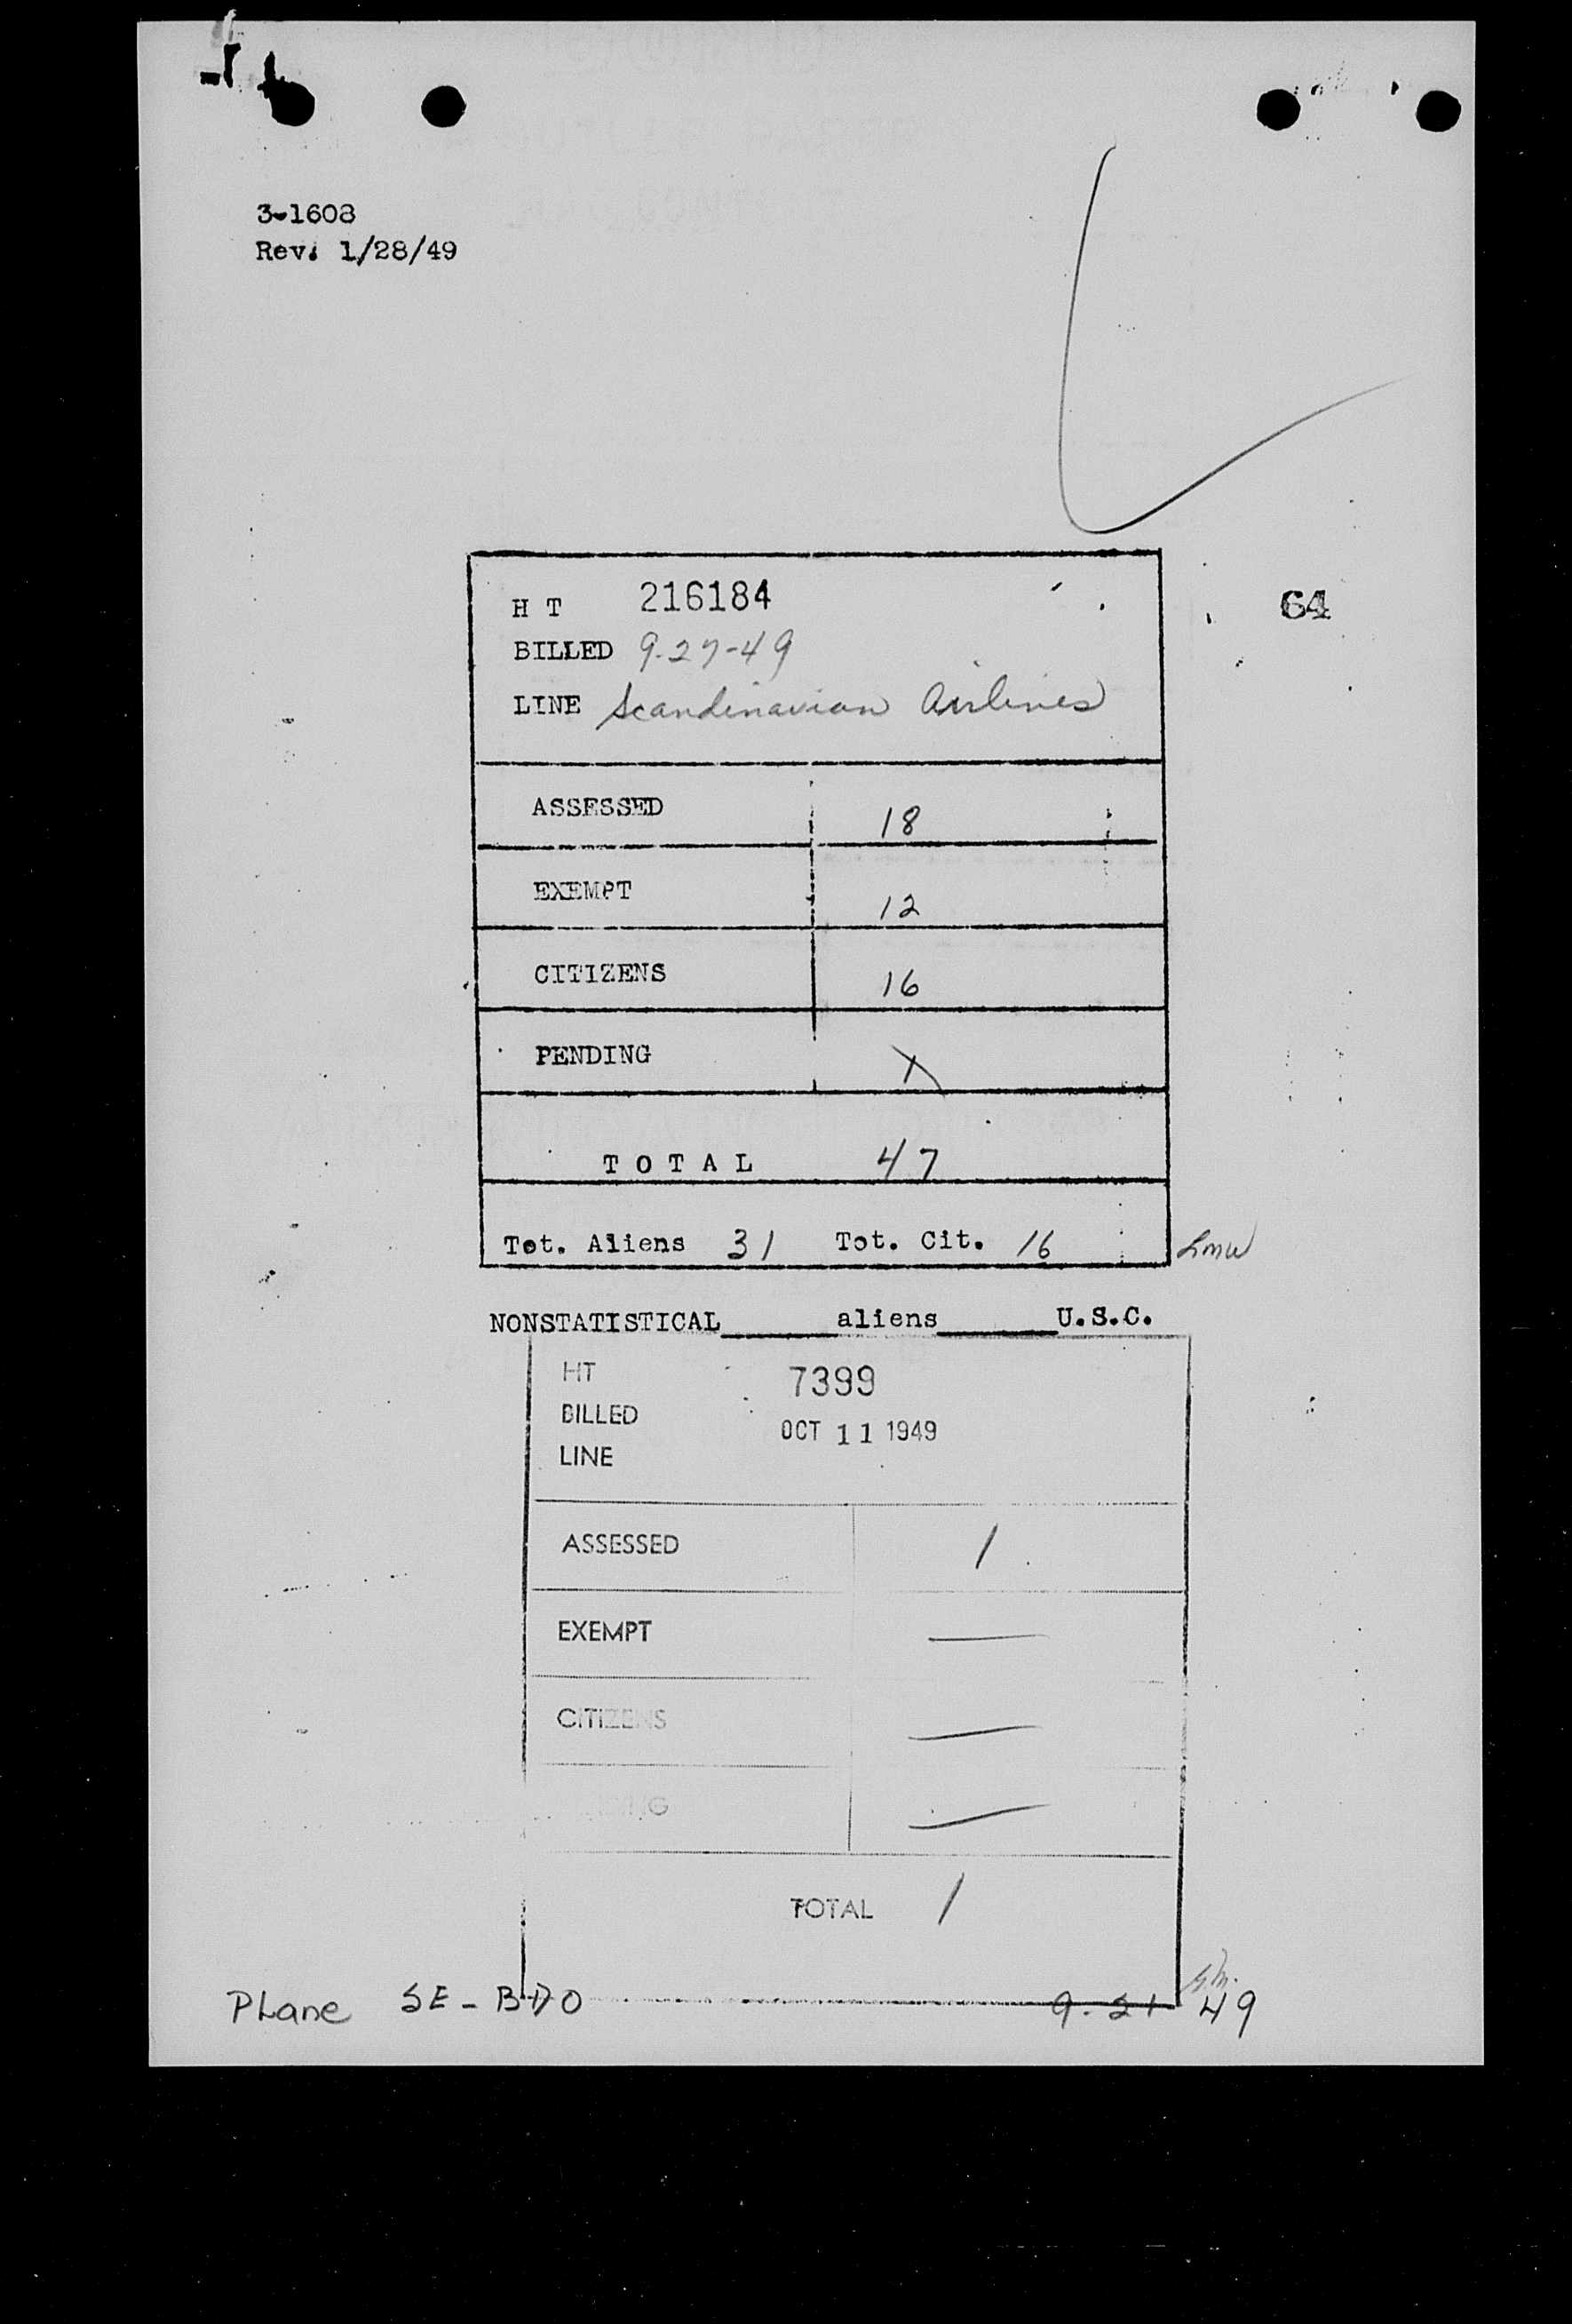 3-1608
Rev. 1/28/49
64
H T 216184
BILLED 9-27-49
LINE Scandinavian Airlines
ASSESSED 18
EXEMPT 12
CITIZENS 16
PENDING X
TOTAL 47
Tot. Aliens 31 Tot. Cit. 16
NONSTATISTICAL______aliens______U.S.C.
HT 7399
BILLED OCT 11 1949
LINE
ASSESSED 1
EXEMPT —
CITIZENS —
—
TOTAL 1
Plane SE-BDO 9-21 49